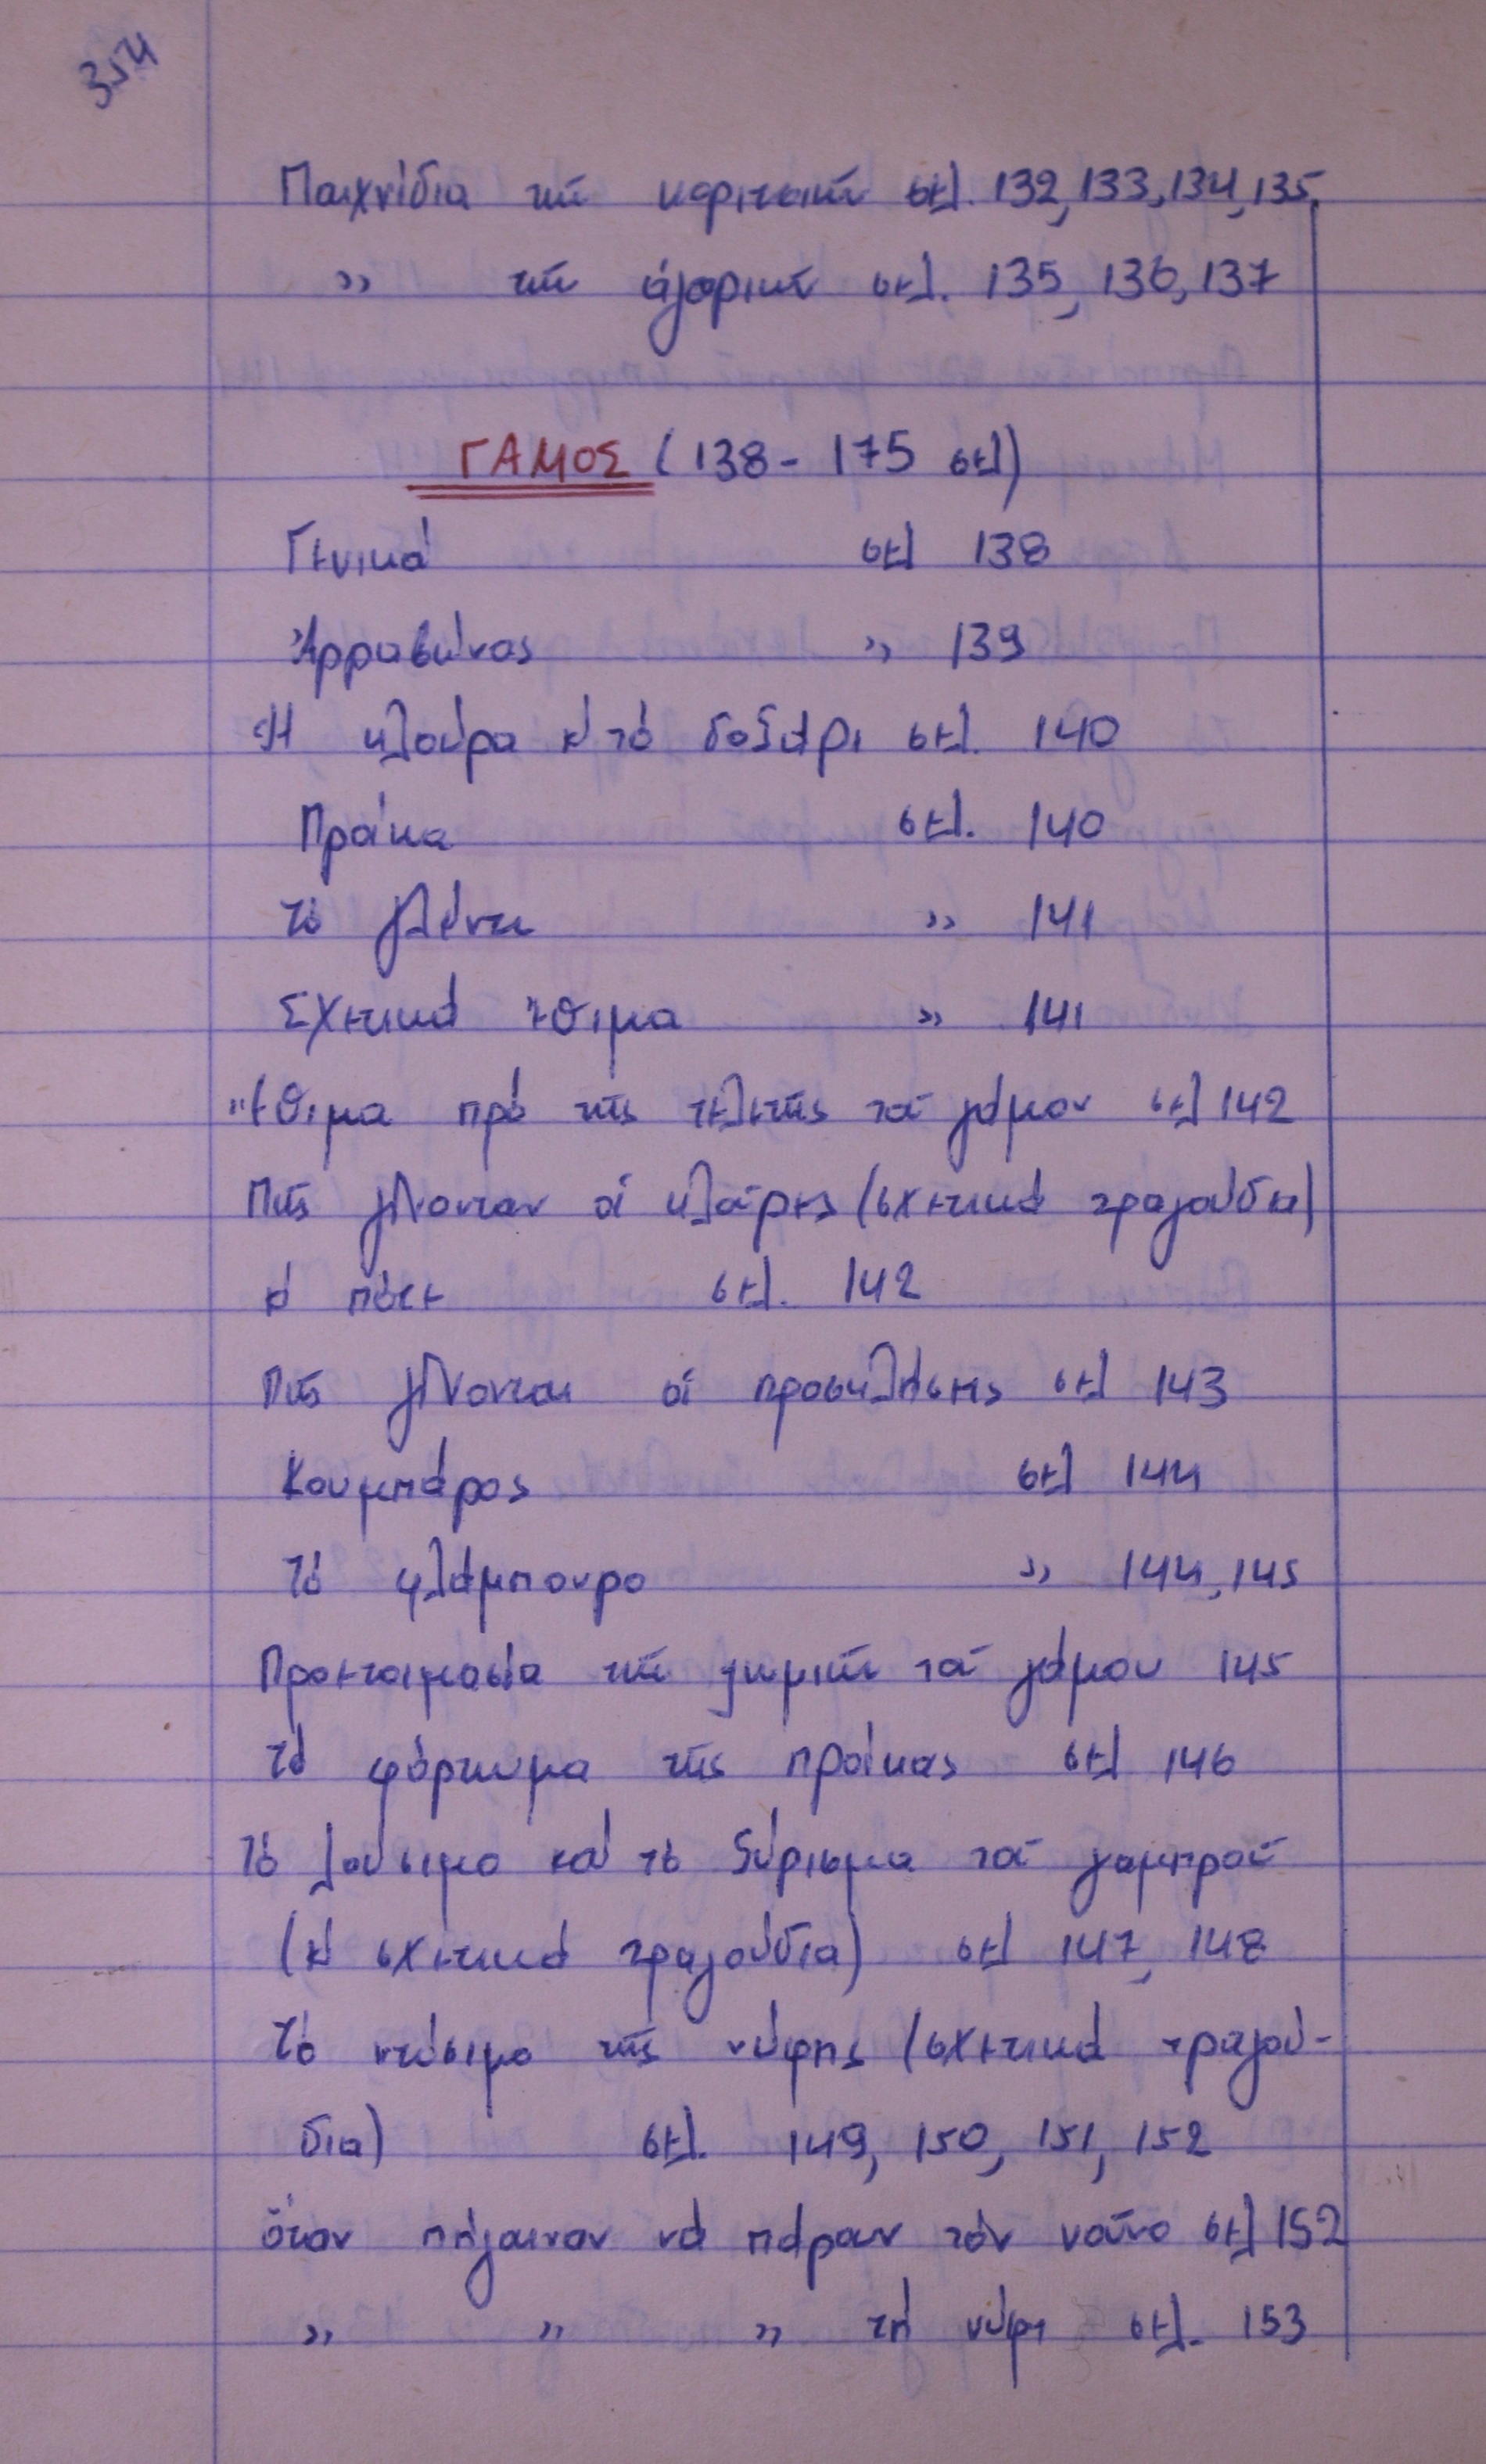 354
Παιχνίδια τῶν κοριτσιῶν σελ. 132, 133, 134, 135.
» τῶν ἀγοριῶν σελ. 135, 136, 137
ΓΑΜΟΣ (138 - 175 σελ)
Γενικά σελ 138
Ἀρραβώνας » 139
Ἡ κλούρα κ' τό δοξάρι σελ. 140
Προίκα σελ. 140
Τό γλέντι » 141
Σχετικά ἔθιμα » 141
Ἔθιμα πρό τῆς τελετῆς τοῦ γάμου σελ 142
Πῶς γίνονταν οἱ κλοῦρες (σχετικά τραγούδια)
κ' πότε σελ. 142
Πῶς γίνονται οἱ προσκλήσεις σελ 143
Κουμπάρος σελ 144
Τό φλάμπουρο » 144, 145
Προετοιμασία τῶν ψωμιῶν τοῦ γάμου 145
Τό φόρτωμα τῆς προίκας σελ 146
Τό λούσιμο καί τό ξύρισμα τοῦ γαμπροῦ
(κ' σχετικά τραγούδια) σελ 147, 148
Τό ντύσιμο τῆς νύφης (σχετικά τραγού-
δια) σελ. 149, 150, 151, 152
ὅταν πήγαιναν νά πάρουν τόν νοῦνο σελ 152
» » » τή νύφη σελ. 153